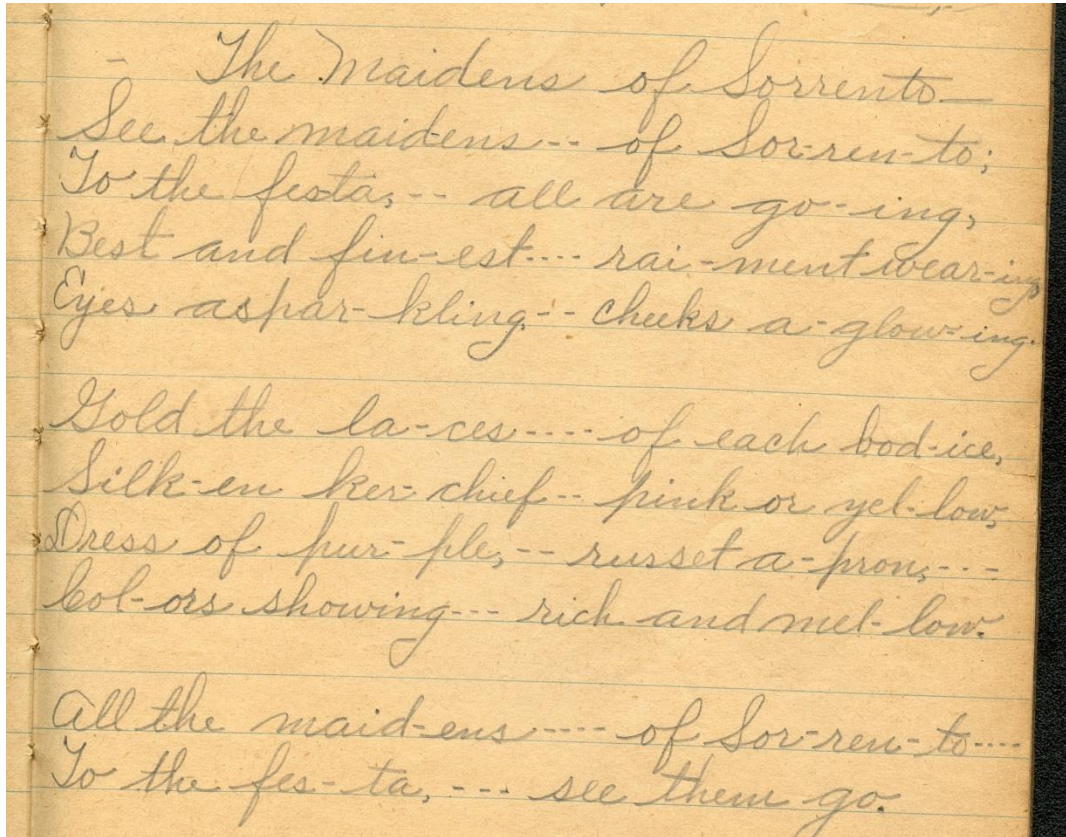 - The Maidens of Sorrento—
See the maidens -- of Sor-ren-to;
To the festa, -- all are go-ing,
Best and fin-est.... rai-ment wear-ing,
Eyes aspar-kling -- cheeks a-glow-ing.
Gold the la-ces .... of each bod-ice,
Silk-en ker-chief -- pink or yel-low,
Dress of pur-ple, -- russet a-pron, ---
Col-ors showing --- rich and mel-low.
All the maid-ens .... of Sor-ren-to....
To the fes-ta, --- see them go.